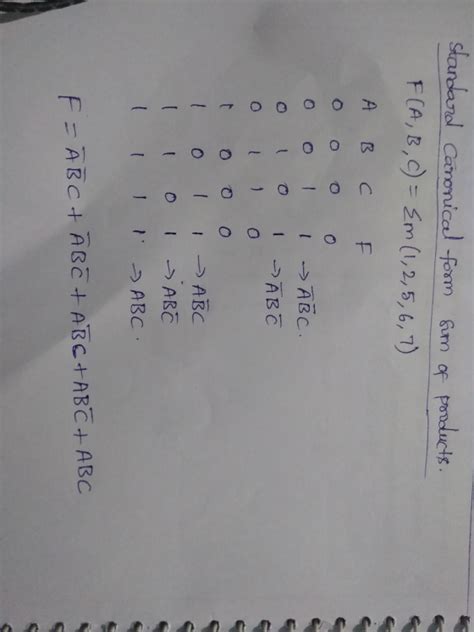 Standard Canonical form Sum of products.
F(A, B, C) = Σm(1,2,5,6,7)
A B C F
0 0 0 0
0 0 1 1 → A̅B̅C.
0 1 0 1 → A̅BC̅
0 1 1 0
1 0 0 0
1 0 1 1 → AB̅C
1 1 0 1 → ABC̅
1 1 1 1 → ABC.
F = A̅B̅C + A̅BC̅ + AB̅C + ABC̅ + ABC